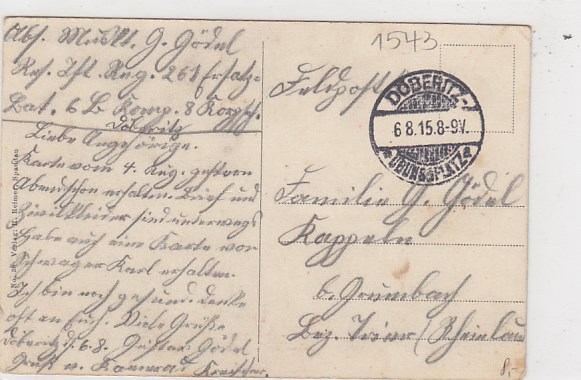 Abs. Muskt. G. Gödel
Res. Ift. Reg. 261 Ersatz-
Bat. 6 b Komp. 8 Korpsch.
Döberitz
Liebe Angehörige.
Karte vom 4. Aug. gestern
Abend schon erhalten. Brief und
Zivilkleider sind unterwegs
Habe auch eine Karte von
Schwager Karl erhalten.
Ich bin noch gesund. denke
oft an Euch. Viele Grüße
Döberitz d. 6.8. Gustav Gödel
Gruß v. Kamerad
1543
Feldpost
DÖBERITZ
6 8.15.8-9V.
ÜBUNGSPLATZ
Familie G. Gödel
Kappeln
b. Grumbach
Bez. Trier (Rheinland
8,-
Verlag:
Spandau